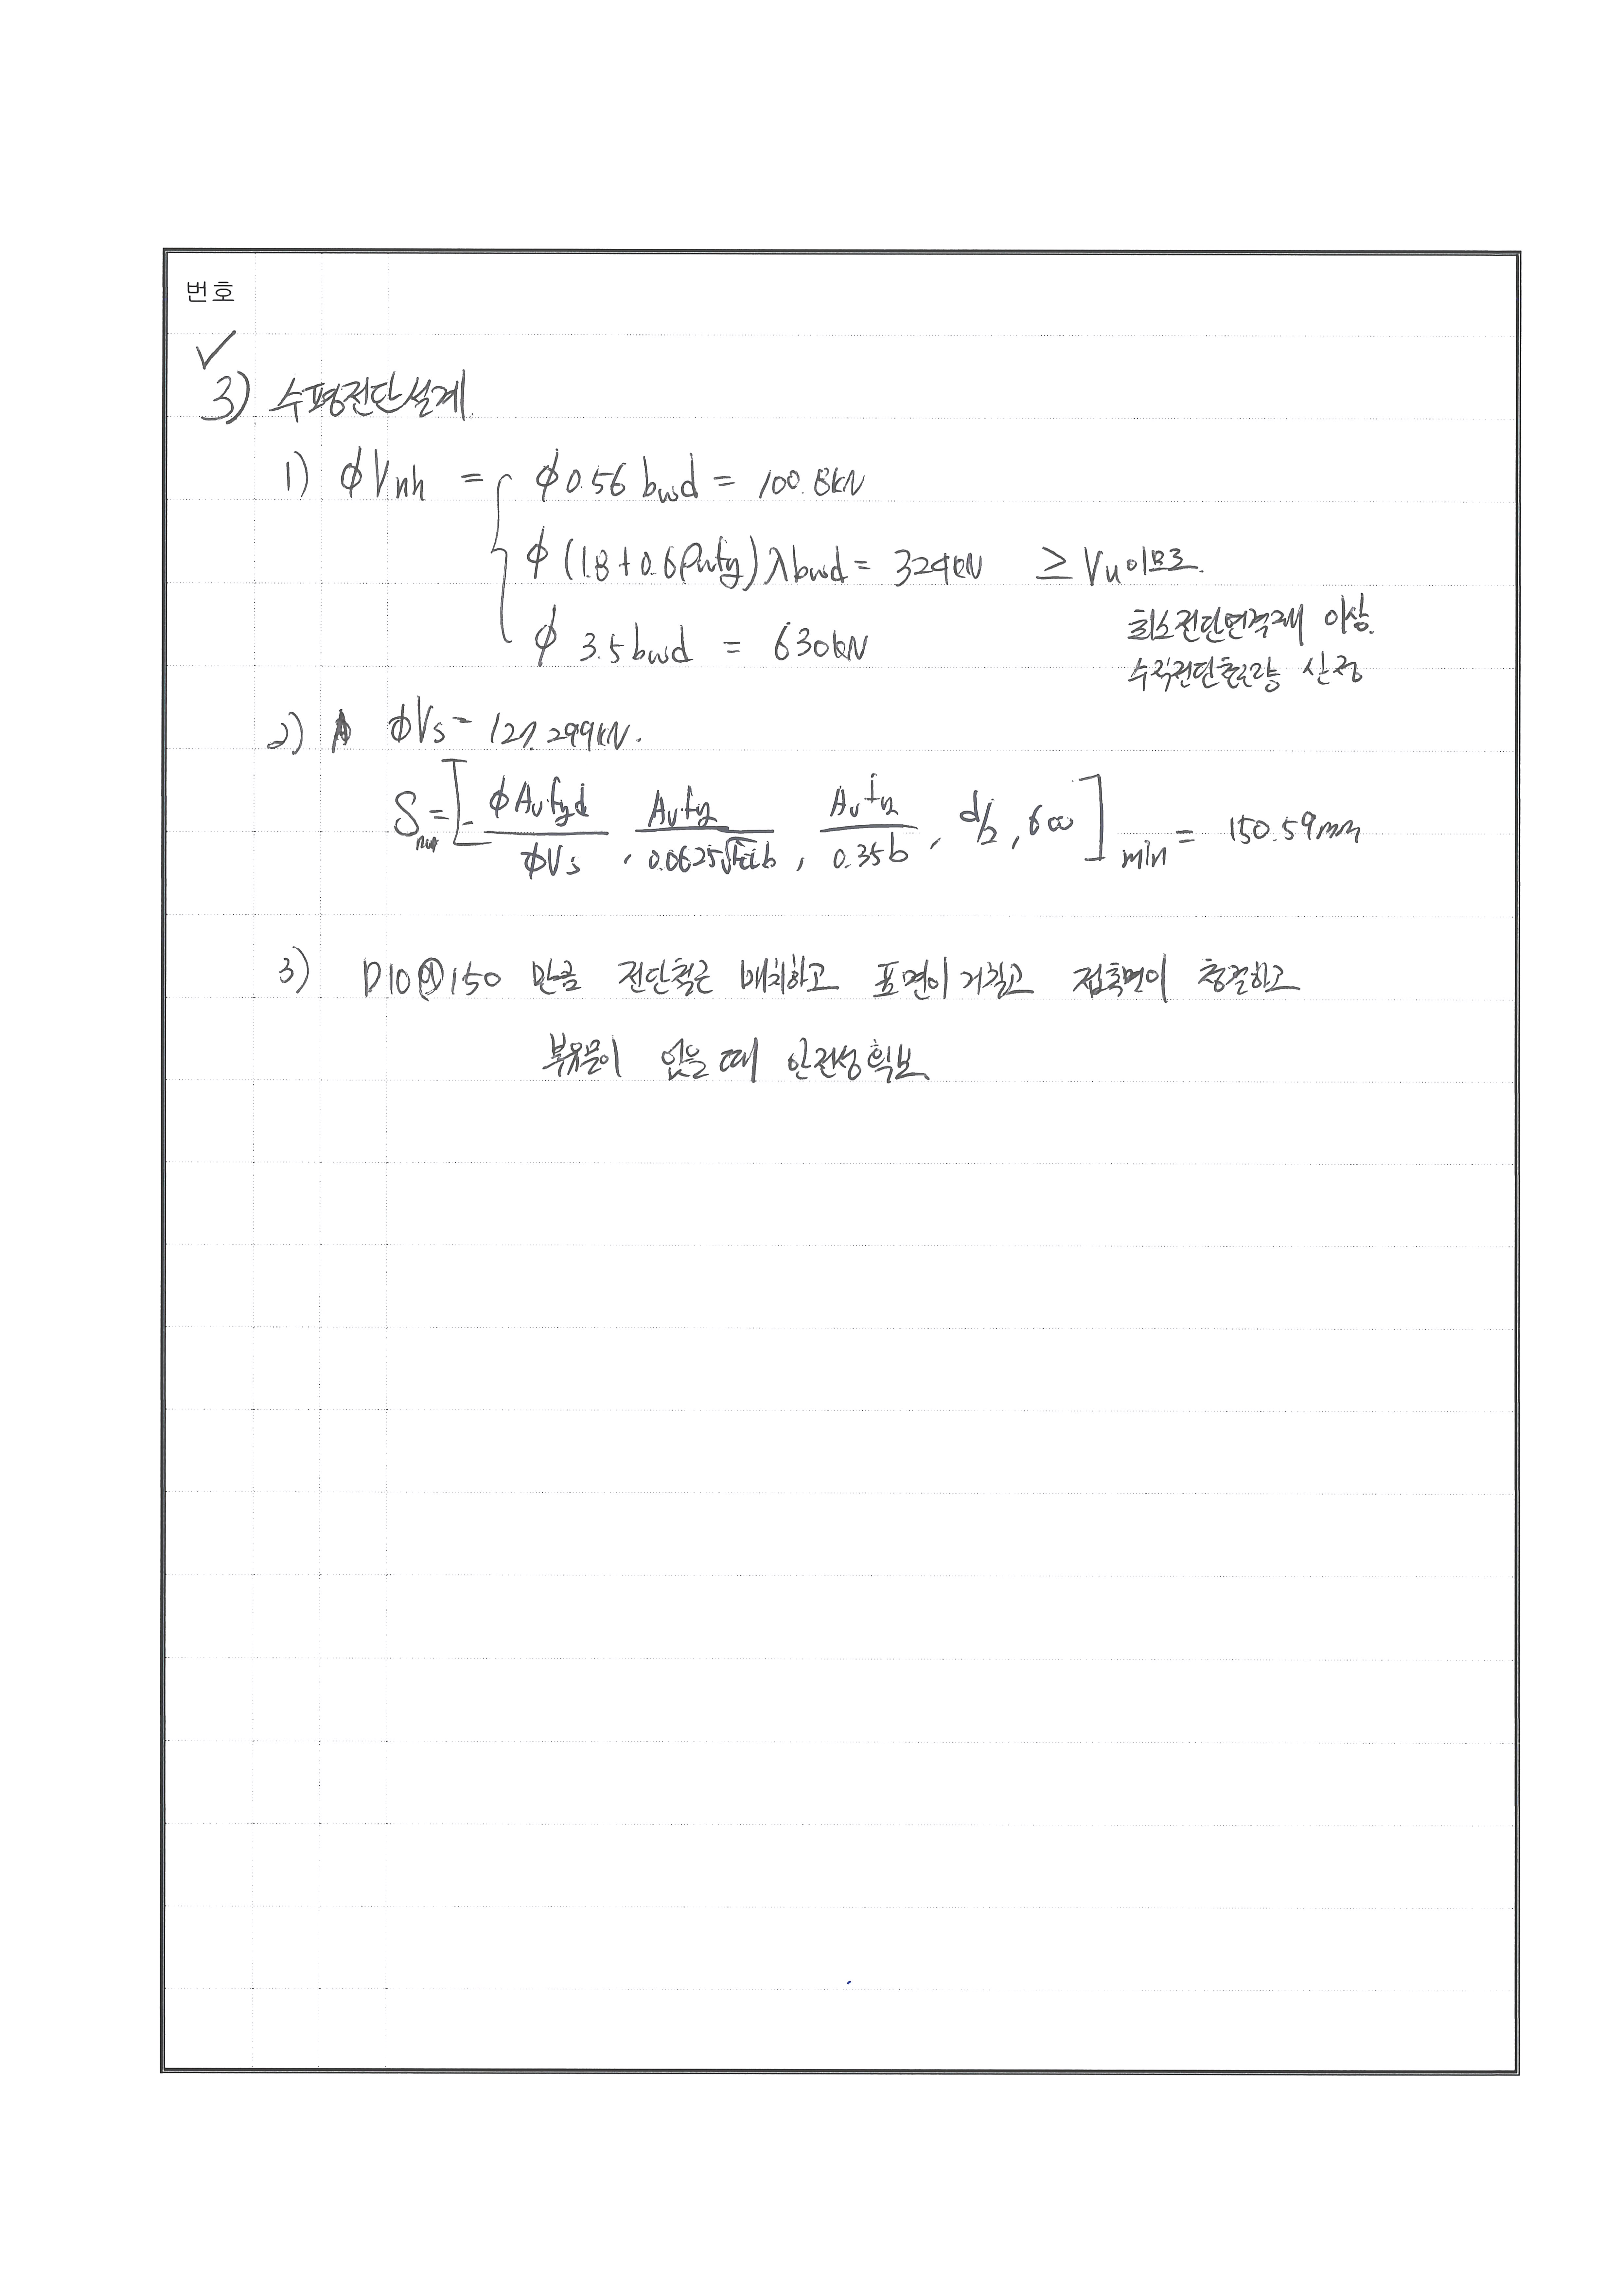 번호
✓
3) 수평전단설계.
1) ϕVnh = { ϕ 0.56 bwd = 100.8kN
ϕ (1.8 + 0.6ρvfy) λ bwd = 324kN ≥ Vu 이므로.
ϕ 3.5 bwd = 630kN
최소전단연결재 이상.
수직전단철근량 산정
2) ϕVs = 127.299kN.
S = [ ϕAvfyd / ϕVs , Avfy / 0.0625√fck b , Avfy / 0.35b , d/2 , 600 ] min = 150.59mm
3) D10@150 만큼 전단철근 배치하고 표면이 거칠고 접촉면이 청결하고
부유물이 없을 때 안전성 확보.